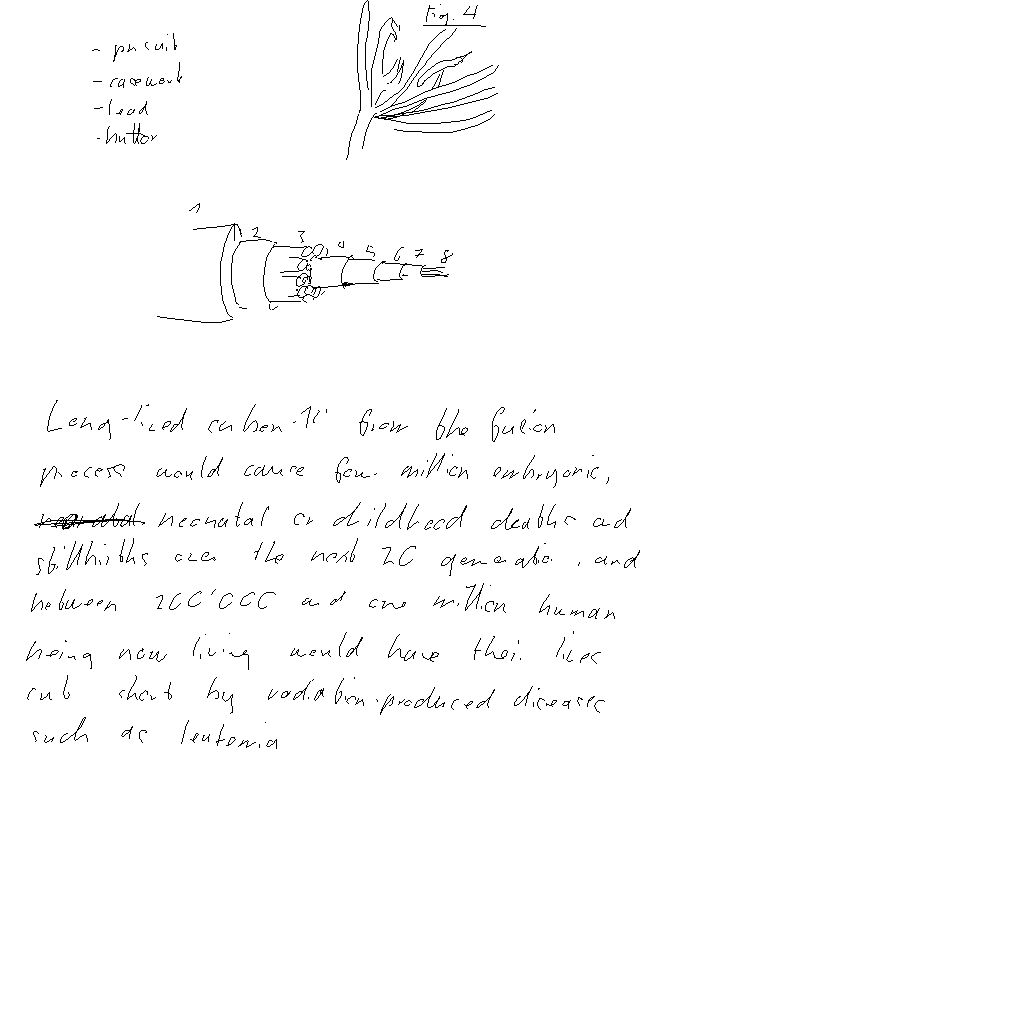 - pursuit
- casework
- lead
- button
Fig. 4
1 2 3 4 5 6 7 8
Long-lived carbon-14 from the fusion
process would cause four million embryonic,
neonatal or childhood deaths and
stillbirths over the next 20 generation, and
between 200'000 and one million human
being now living would have their lives
cut short by radiation-produced diseases
such as leukemia